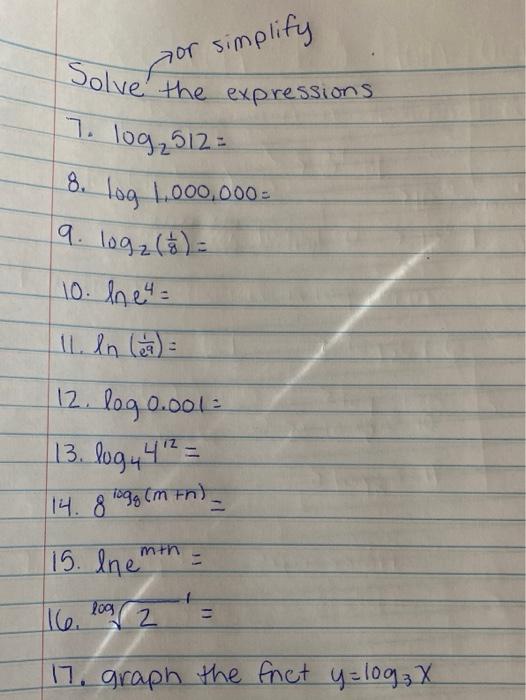 or simplify
Solve the expressions
7. log₂512=
8. log 1,000,000=
9. log₂(1/8)=
10. ln e⁴=
11. ln (1/e⁹)=
12. log 0.001=
13. log₄4¹²=
14. 8^log₈(m+n)=
15. ln e^m+n=
16. log√2 1 =
17. graph the fnct y=log₃X